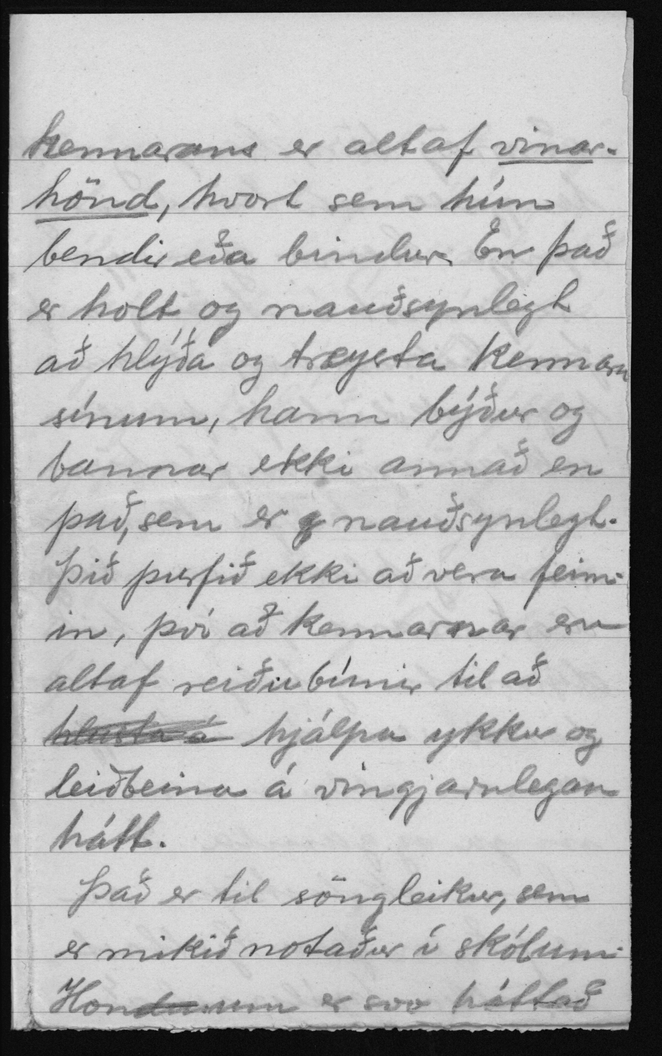 kennarans er altaf vinar-
hönd, hvort sem hún
bendir eða bindur. En það
er holt og nauðsynlegt
að hlýða og treysta kennara
sínum, hann býður og
bannar ekki annað en
það, sem er nauðsynlegt.
Þið þurfið ekki að vera feim-
in, því að kennarar eru
altaf reiðubúnir til að
hlusta á hjálpa ykkur og
leiðbeina á vingjarnlegan
hátt.
Það er til söngleikur, sem
er mikið notaður í skólum.
Honum er svo háttað